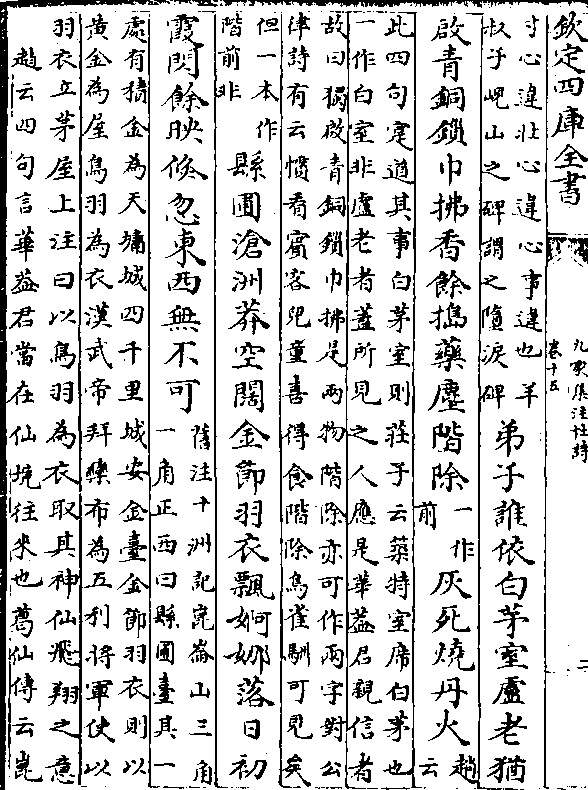 欽定四庫全書
九家集注杜詩
卷十五
二
寸心違壯心違心事違也羊
叔子峴山之碑謂之墮淚碑
弟子誰依白茅室盧老猶
啟青銅鎖巾拂香餘搗藥塵階除
一作
前
灰死燒丹火
趙
云
此四句寔道其事白茅室則莊子云築特室席白茅也
一作白室非盧老者蓋所見之人應是華蓋君親信者
故曰猶啟青銅鎖巾拂是兩物階除亦可作兩字對公
律詩有云慣看賓客兒童喜得食階除鳥雀馴可見矣
但一本作
階前非
縣圃滄洲莽空闊金節羽衣飄婀娜落日初
霞閃餘映倐忽東西無不可
舊注十洲記崑崙山三角
一角正西曰縣圃臺其一
處有積金為天墉城四千里城安金臺金節羽衣則以
黄金為屋鳥羽為衣漢武帝拜欒布為五利將軍使以
羽衣立茅屋上注曰以鳥羽為衣取其神仙飛翔之意
趙云四句言華蓋君當在仙境往來也葛仙傳云崑